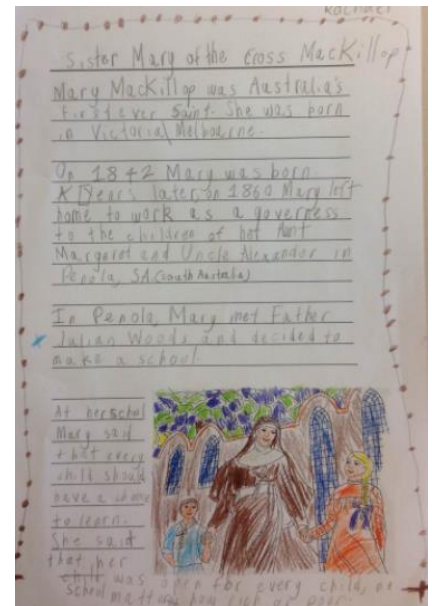 Rachael
Sister Mary of the Cross MacKillop
Mary MacKillop was Australia's
first ever Saint. She was born
in Victoria, Melbourne.
On 1842 Mary was born.
Years later, on 1860 Mary left
home to work as a governess
to the children of het Aunt
Margaret and Uncle Alexander in
Penola, SA (South Australia)
In Penola, Mary met Father
Julian Woods and decided to
make a school.
At her schol
Mary said
that every
child should
have a
to learn.
She said
that her
child was open for every child, no
school matter how rich or poor